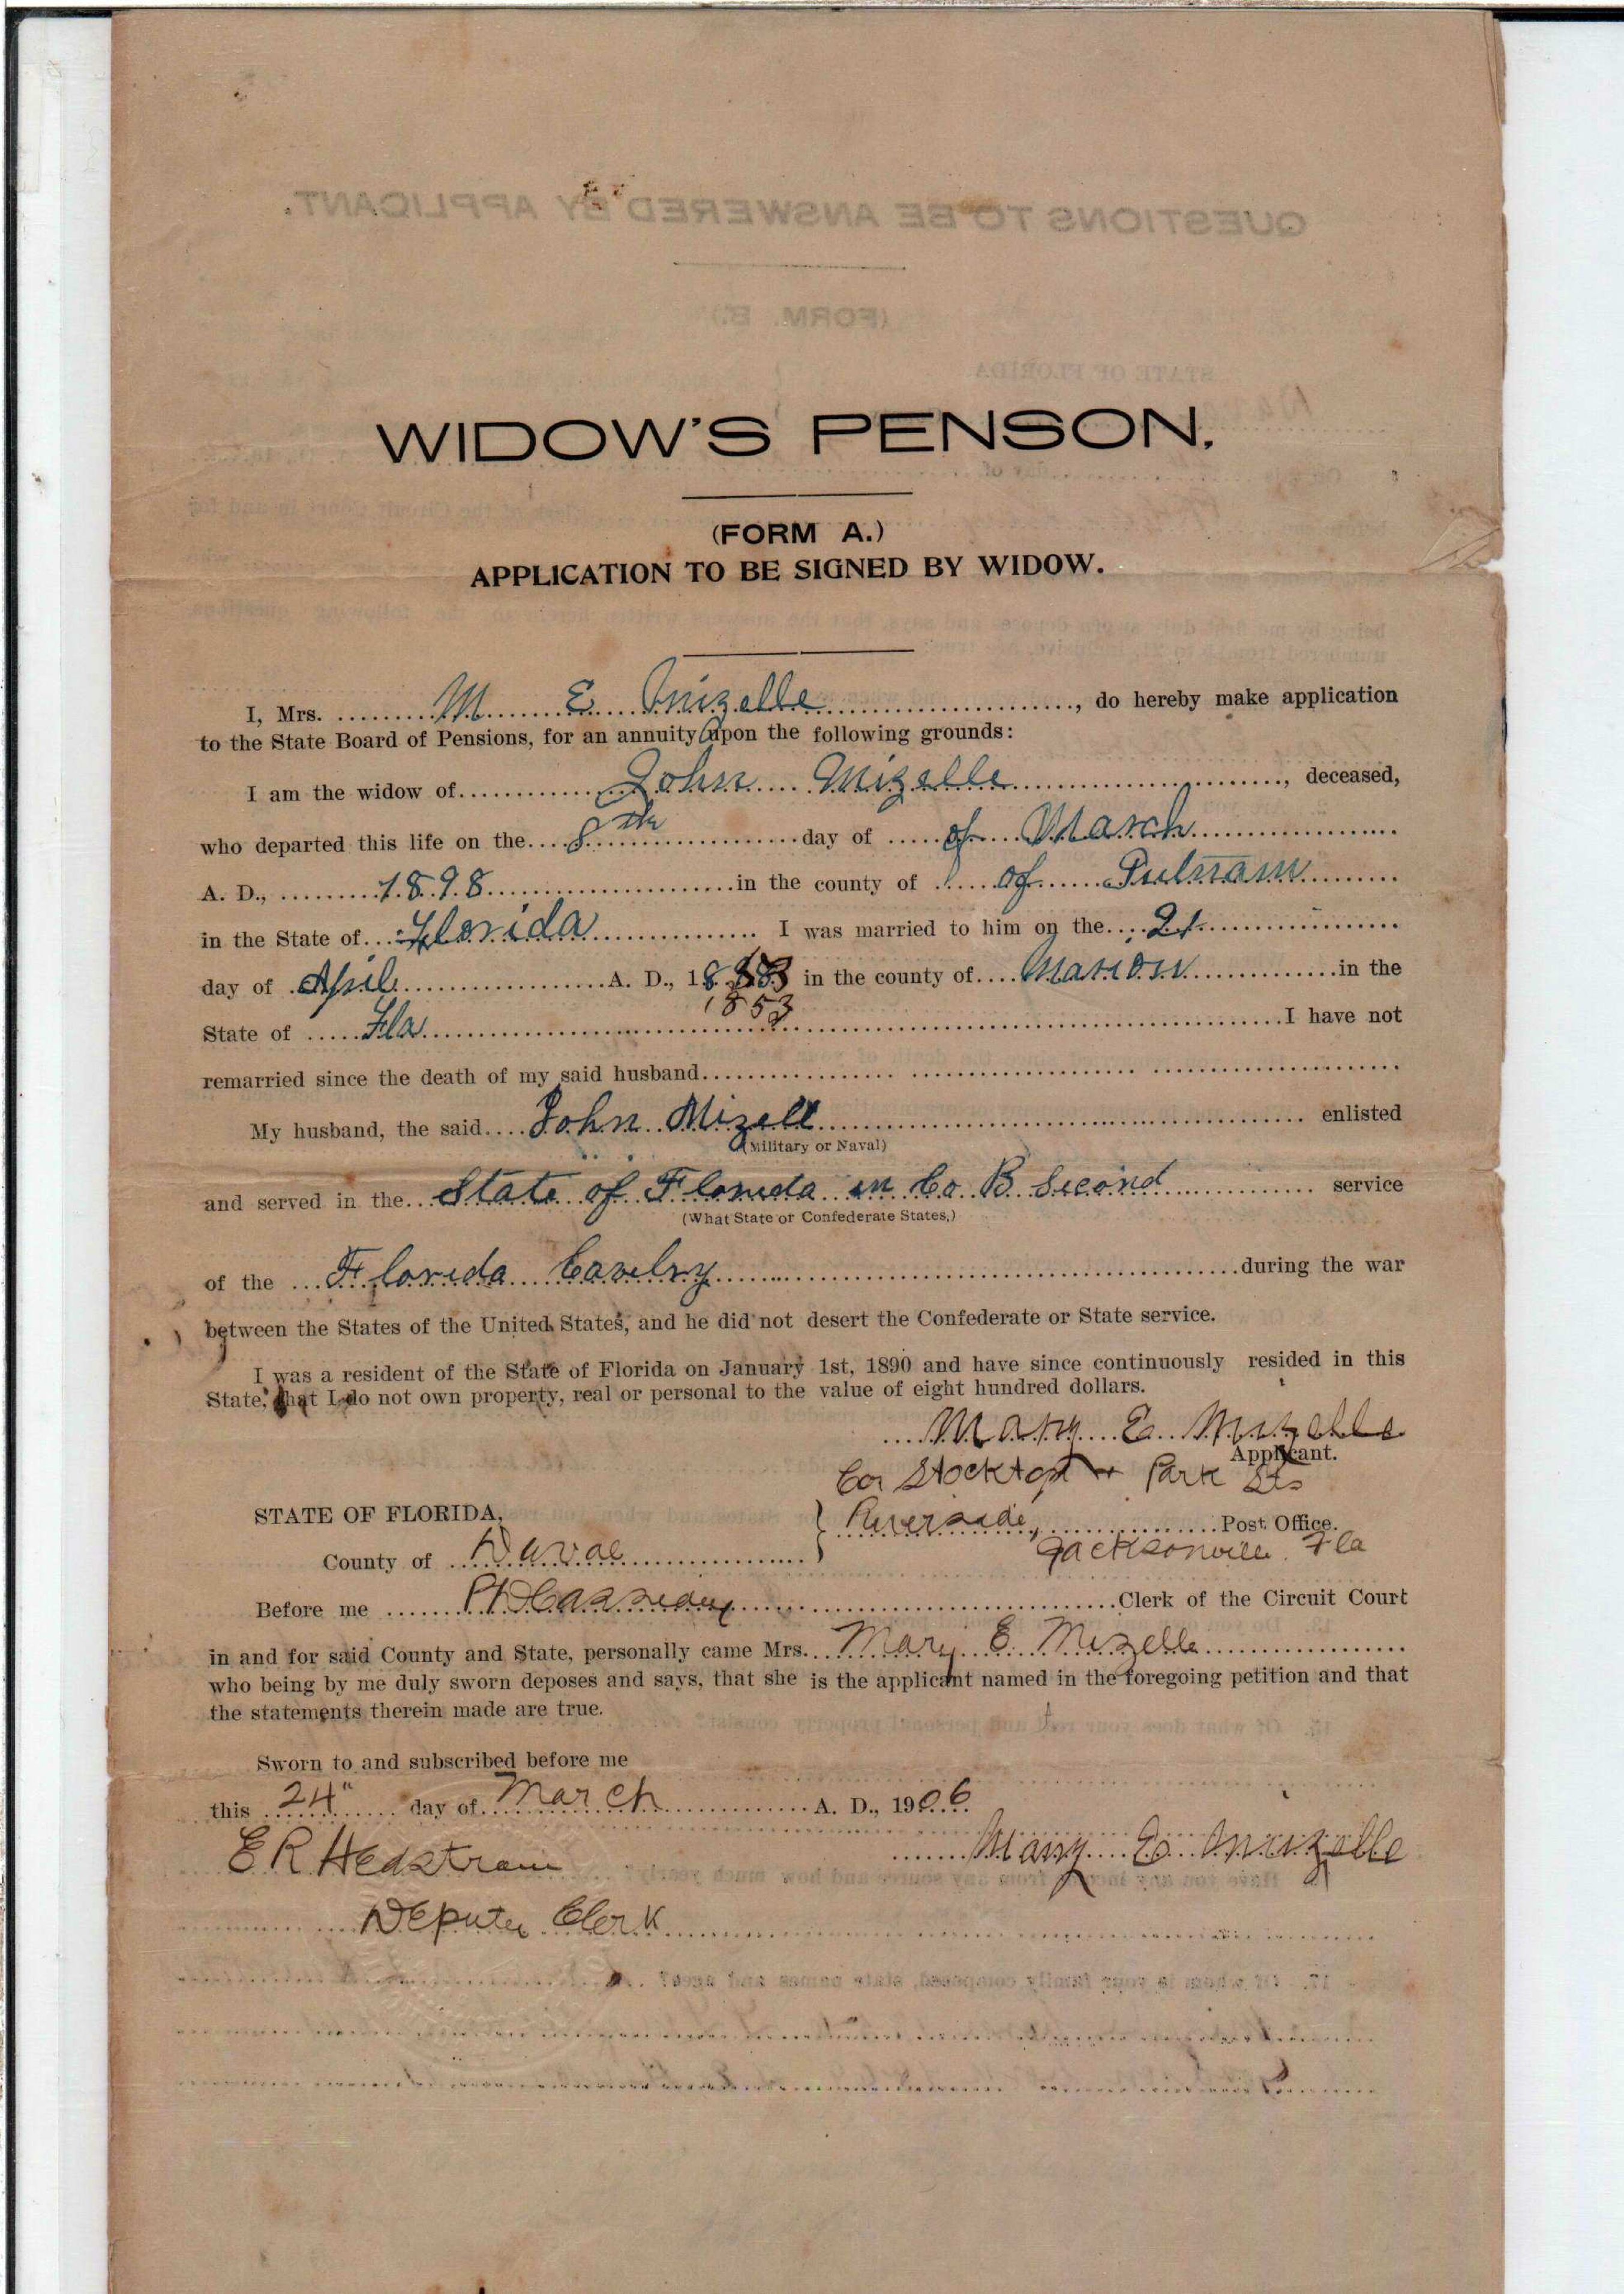 WIDOW'S PENSON.
(FORM A.)
APPLICATION TO BE SIGNED BY WIDOW.
I, Mrs. M E Mizelle, do hereby make application
to the State Board of Pensions, for an annuity upon the following grounds:
I am the widow of John Mizelle, deceased,
who departed this life on the 8th day of of March
A. D., 1898 in the county of of Putnam
in the State of Florida I was married to him on the 21
day of April A. D., 18 53 in the county of Marion in the
1853
State of Fla I have not
remarried since the death of my said husband
My husband, the said John Mizell enlisted
(Military or Naval)
and served in the State of Florida in Co B Second service
(What State or Confederate States,)
of the Florida Cavelry during the war
between the States of the United States, and he did not desert the Confederate or State service.
I was a resident of the State of Florida on January 1st, 1890 and have since continuously resided in this
State, that I do not own property, real or personal to the value of eight hundred dollars.
Mary E. Mizelle
Applicant.
Cor Stockton & Park Sts
STATE OF FLORIDA,
Riverside, Post Office.
County of Duval
Jacksonville Fla
Before me P D Cassidey Clerk of the Circuit Court
in and for said County and State, personally came Mrs. Mary E. Mizelle
who being by me duly sworn deposes and says, that she is the applicant named in the foregoing petition and that
the statements therein made are true.
Sworn to and subscribed before me
this 24" day of March A. D., 1906
Mary E. Mizelle
E R Hedstrom
Deputy Clerk